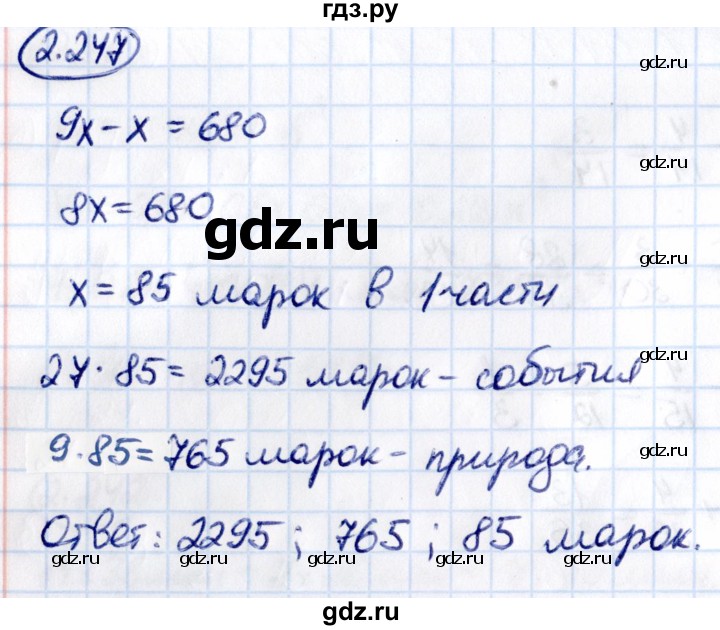 гдз.ру
2.247
gdz.ru
9x - x = 680
gdz.ru
8x = 680
gdz.ru
gdz.ru
x = 85 марок в 1 части
27 · 85 = 2295 марок - события
gdz.ru
9 · 85 = 765 марок - природа.
gdz.ru
Ответ: 2295 ; 765 ; 85 марок.
gdz.ru gdz.ru gdz.ru gdz.ru
gdz.ru